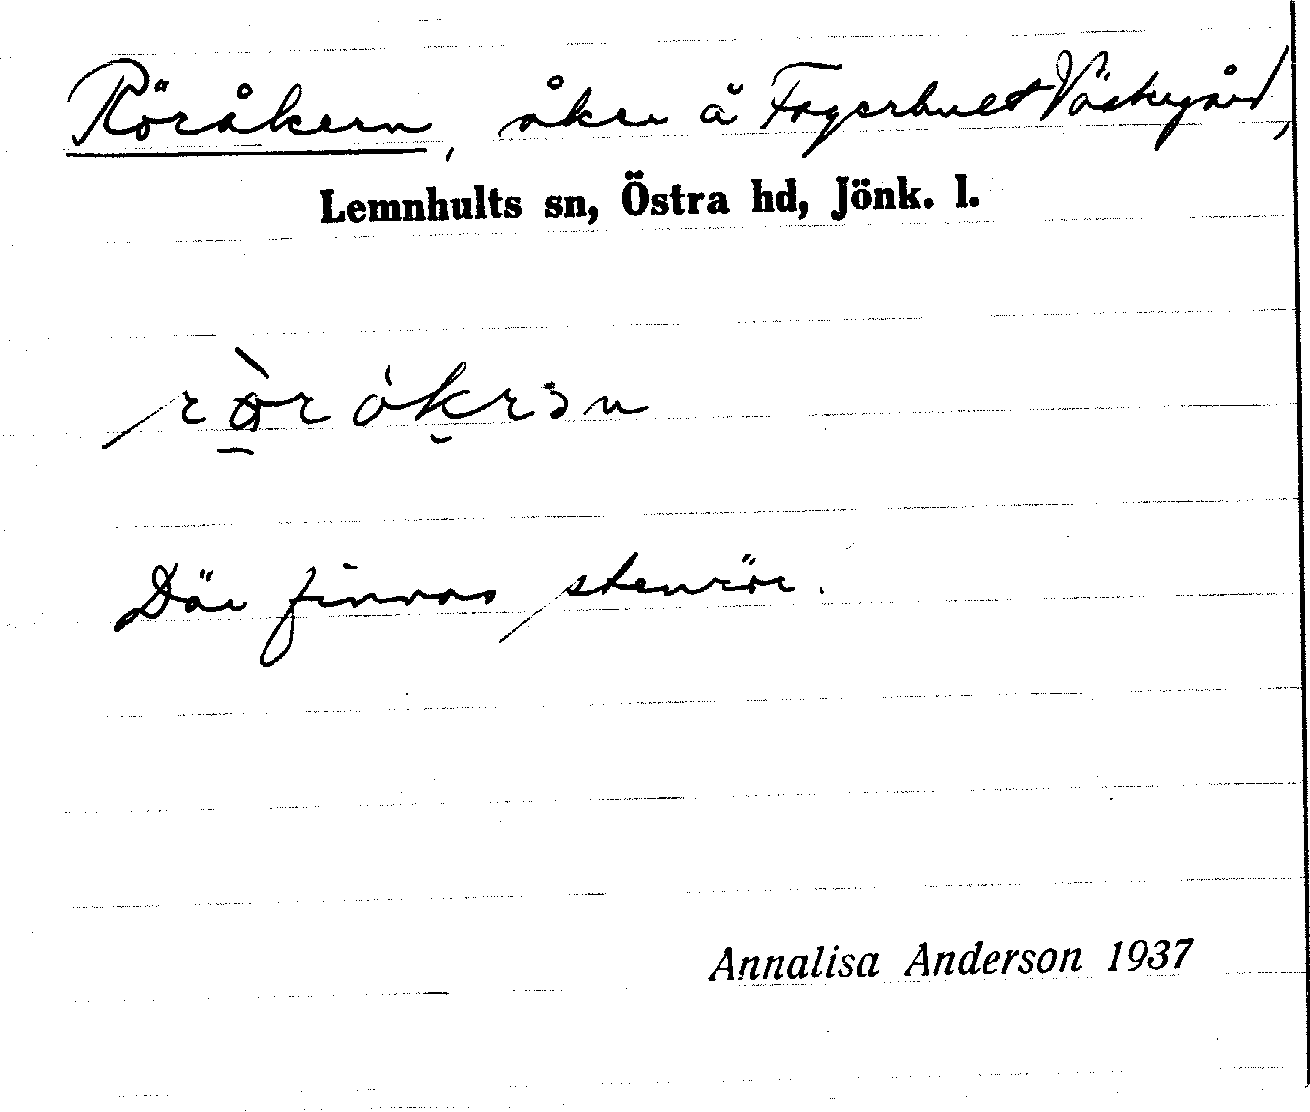 Röråkern, åker å Fagerhult Västergård,
Lemnhults sn, Östra hd, Jönk. l.
Där finnas stenrör.
Annalisa Anderson 1937